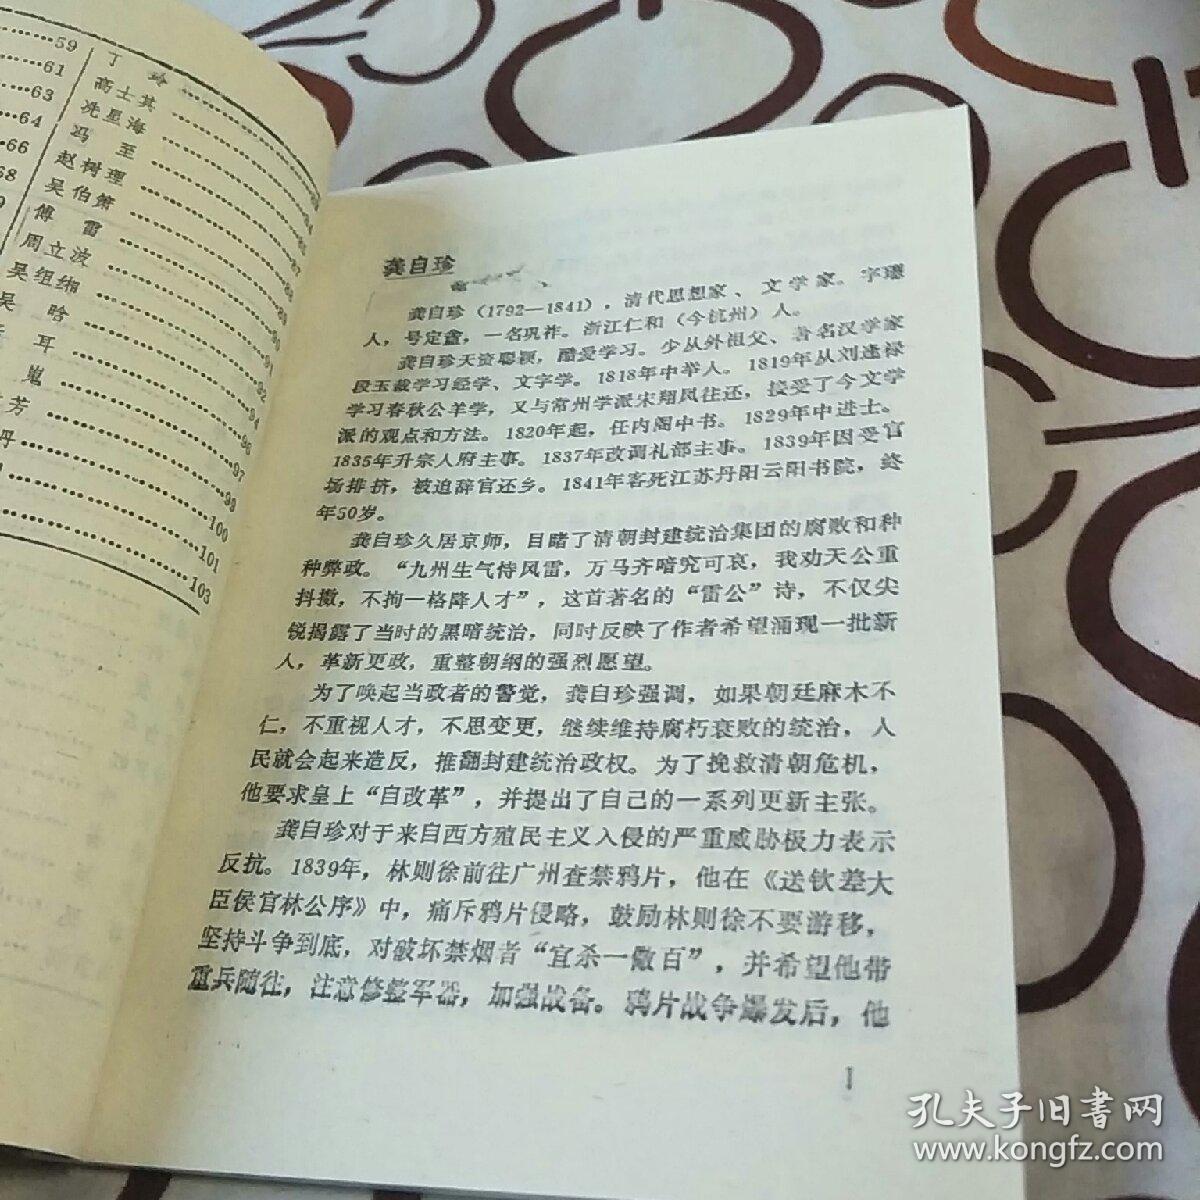 59
61
63
64
66
68
9
丁 玲
高士其
冼星海
冯 至
赵树理
吴伯箫
傅 雷
周立波
吴组缃
吴 晗
耳
嵬
芳
丹
91
92
94
96
97
99
100
101
103
龚自珍
龚自珍（1792—1841），清代思想家、文学家。字璱
人，号定盦，一名巩祚。浙江仁和（今杭州）人。
龚自珍天资聪颖，酷爱学习。少从外祖父、著名汉学家
段玉裁学习经学、文字学。1818年中举人。1819年从刘逢禄
学习春秋公羊学，又与常州学派宋翔凤往还，接受了今文学
派的观点和方法。1820年起，任内阁中书。1829年中进士。
1835年升宗人府主事。1837年改调礼部主事。1839年因受官
场排挤，被迫辞官还乡。1841年客死江苏丹阳云阳书院，终
年50岁。
龚自珍久居京师，目睹了清朝封建统治集团的腐败和种
种弊政。“九州生气恃风雷，万马齐喑究可哀，我劝天公重
抖擞，不拘一格降人才”，这首著名的“雷公”诗，不仅尖
锐揭露了当时的黑暗统治，同时反映了作者希望涌现一批新
人，革新更政，重整朝纲的强烈愿望。
为了唤起当政者的警觉，龚自珍强调，如果朝廷麻木不
仁，不重视人才，不思变更，继续维持腐朽衰败的统治，人
民就会起来造反，推翻封建统治政权。为了挽救清朝危机，
他要求皇上“自改革”，并提出了自己的一系列更新主张。
龚自珍对于来自西方殖民主义入侵的严重威胁极力表示
反抗。1839年，林则徐前往广州查禁鸦片，他在《送钦差大
臣侯官林公序》中，痛斥鸦片侵略，鼓励林则徐不要游移，
坚持斗争到底，对破坏禁烟者“宜杀一儆百”，并希望他带
重兵随往，注意修整军器，加强战备。鸦片战争爆发后，他
1
孔夫子旧书网
www.kongfz.com